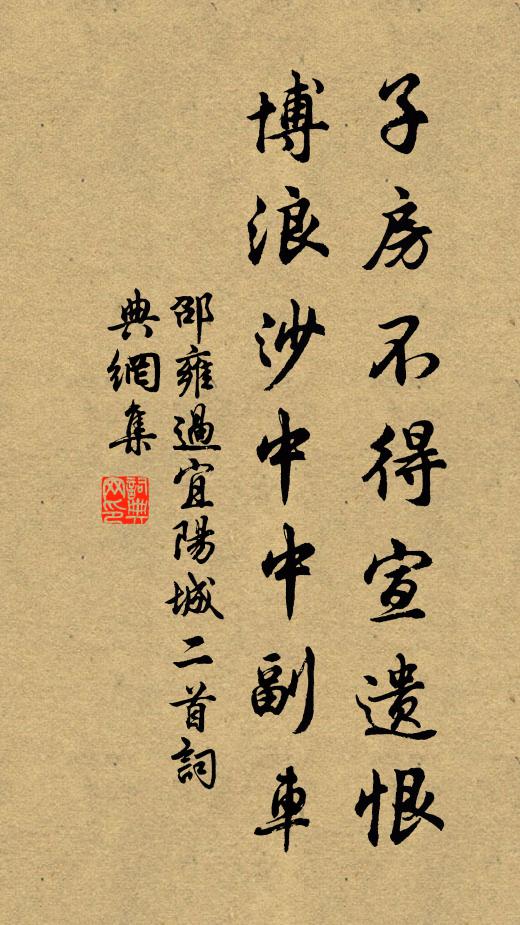 子房不得宣遗恨
博浪沙中中副車
邵雍過宜陽城二首詞
典網集
詞典网印